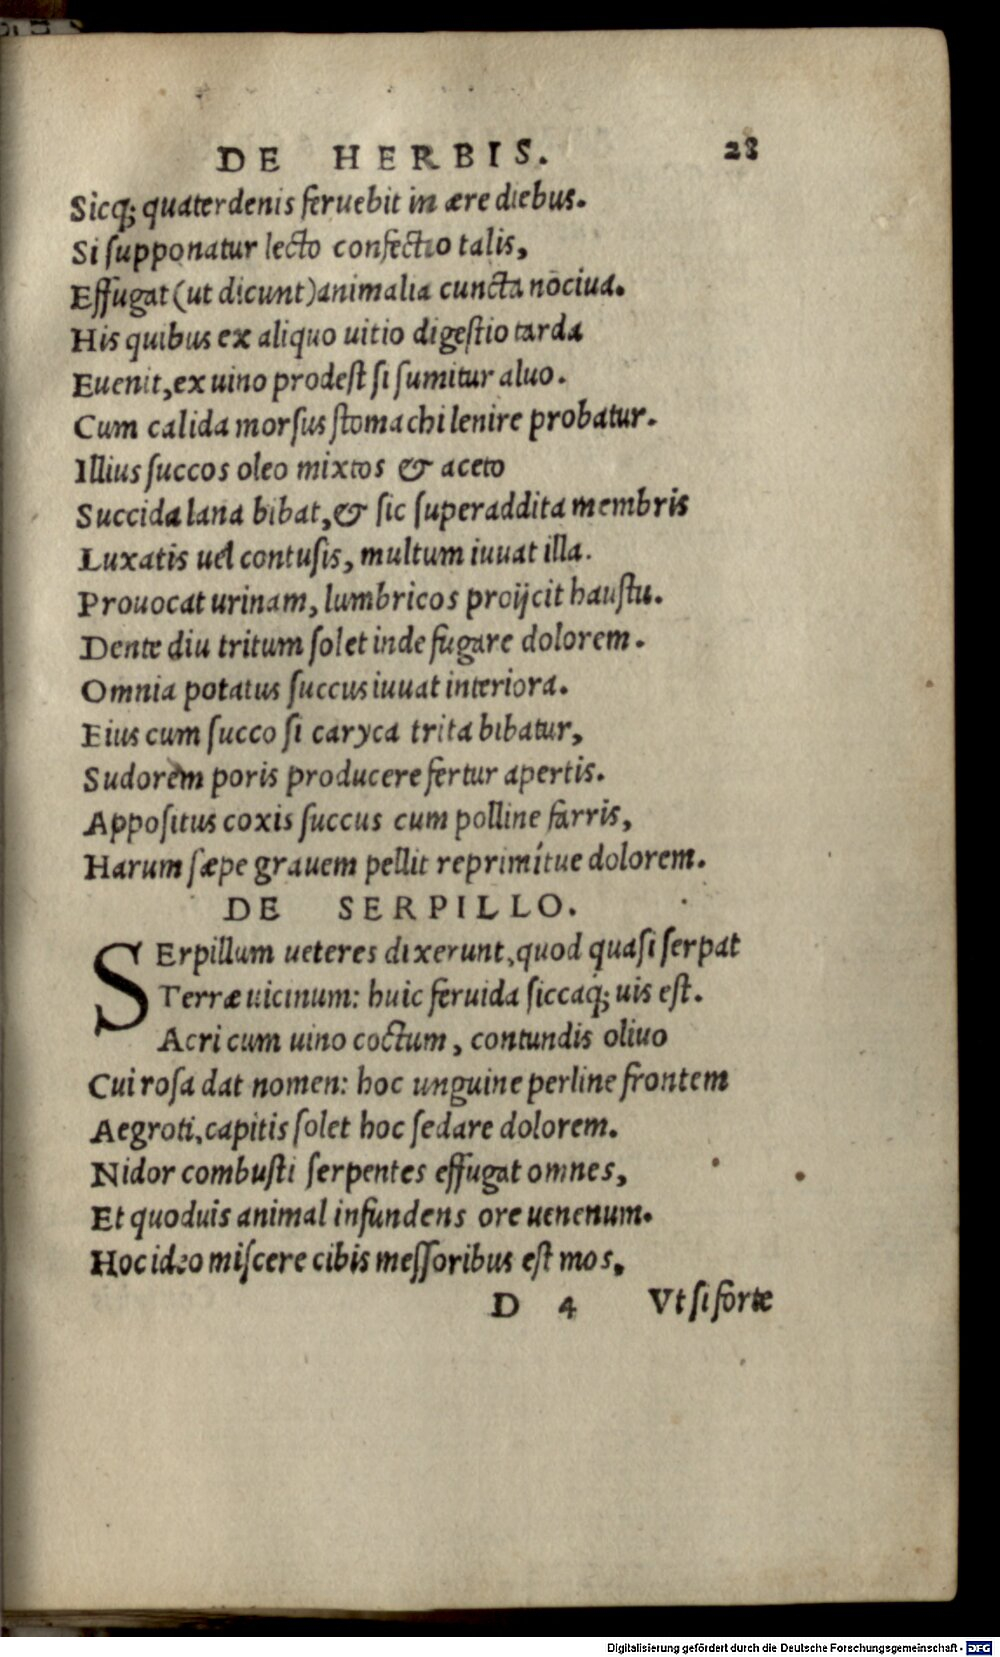 DE HERBIS. 28
Sicq; quaterdenis feruebit in ære diebus.
Si ſupponatur lecto confectio talis,
Effugat (ut dicunt) animalia cuncta nociua.
His quibus ex aliquo uitio digeſtio tarda
Euenit, ex uino prodeſt ſi ſumitur aluo.
Cum calida morſus ſtomachi lenire probatur.
Illius ſuccos oleo mixtos & aceto
Succida lana bibat, & ſic ſuperaddita membris
Luxatis uel contuſis, multum iuuat illa.
Prouocat urinam, lumbricos proijcit hauſtu.
Dente diu tritum ſolet inde fugare dolorem.
Omnia potatus ſuccus iuuat interiora.
Eius cum ſucco ſi caryca trita bibatur,
Sudorem poris producere fertur apertis.
Appoſitus coxis ſuccus cum polline farris,
Harum ſæpe grauem pellit reprimítue dolorem.
DE SERPILLO.
SErpillum ueteres dixerunt, quod quaſi ſerpat
Terræ uicinum: huic feruida ſiccaq; uis eſt.
Acri cum uino coctum, contundis oliuo
Cui roſa dat nomen: hoc unguine perline frontem
Aegroti, capitis ſolet hoc ſedare dolorem.
Nidor combuſti ſerpentes effugat omnes,
Et quoduis animal infundens ore uenenum.
Hoc ideo miſcere cibis meſſoribus eſt mos,
D 4 Vt ſi forte
Digitalisierung gefördert durch die Deutsche Forschungsgemeinschaft - DFG